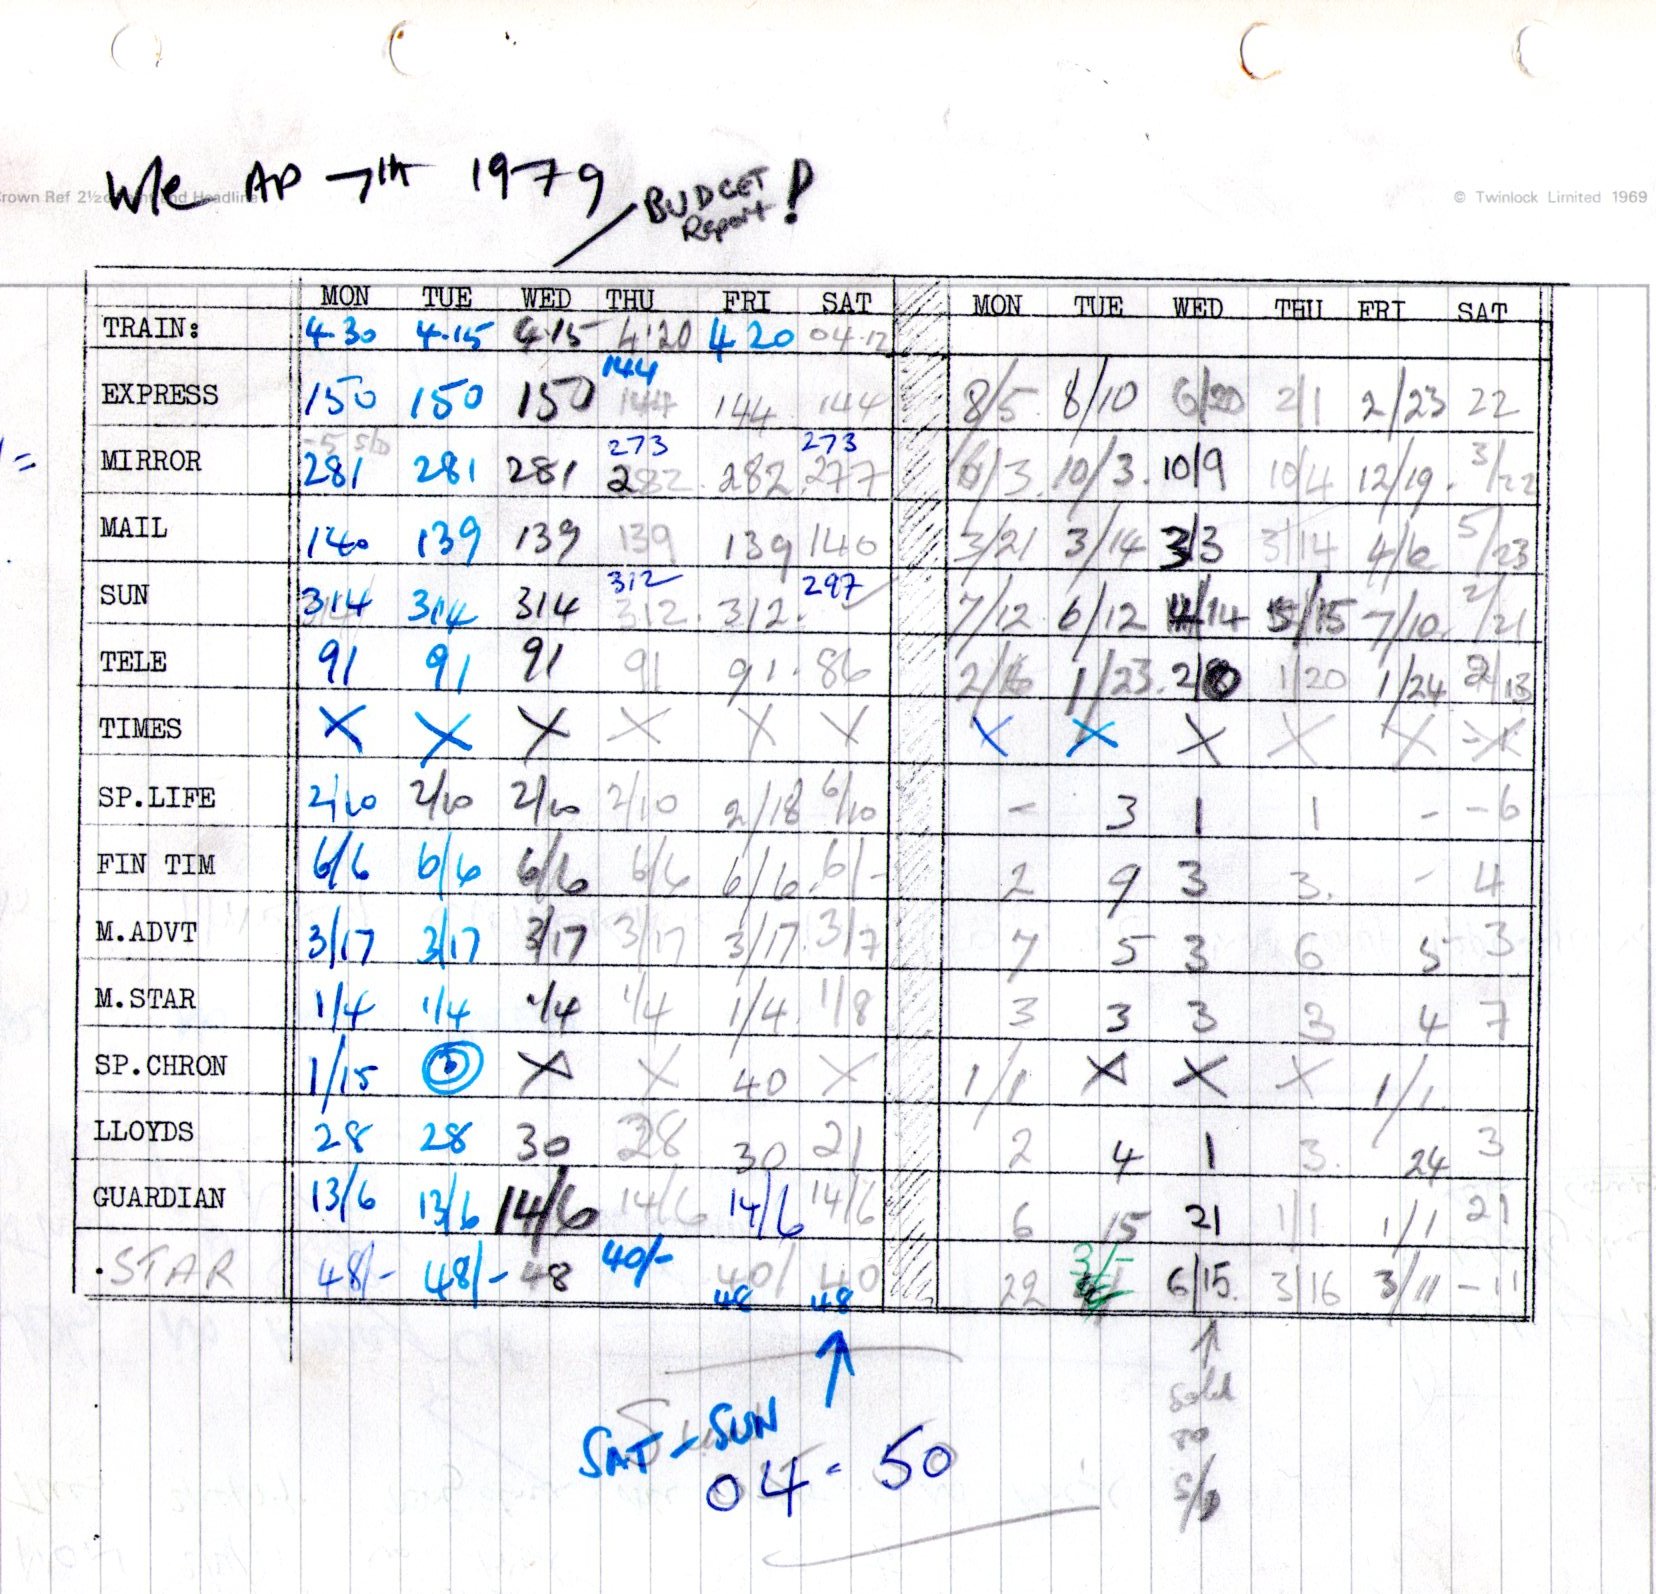 W/e AP 7th 1979
BUDGET
Report !
© Twinlock Limited 1969
MON TUE WED THU FRI SAT MON TUE WED THU FRI SAT
TRAIN: 4.30 4.15 4.15 4.20 4.20 04.12
144
EXPRESS 150 150 150 144 144 144 8/5 8/10 6/20 2/1 2/23 22
273 273
MIRROR 281 281 281 282 282 277 10/3 10/9 10/4 12/19 3/22
MAIL 140 139 139 139 139 140 3/21 3/14 3/3 3/14 4/6 5/23
312 297
SUN 314 314 314 312 312 7/12 6/12 14 5/15 7/10 2/21
TELE 91 91 91 91 91 86 1/23 1/20 1/24 2/13
TIMES X X X X X X X X X X X
SP.LIFE 2/10 2/10 2/10 2/10 2/18 6/10 - 3 1 1 - - 6
FIN TIM 6/6 6/6 6/6 6/6 6/6 6/- 2 9 3 3. - 4
M.ADVT 3/17 3/17 3/17 3/17 3/17 3/7 7 5 3 6 5 3
M.STAR 1/4 1/4 1/4 1/4 1/4 1/8 3 3 3 3 4 7
SP.CHRON 1/15 X X 40 X 1/1 X X X 1/1
LLOYDS 28 28 30 28 30 21 2 4 1 3. 24 3
GUARDIAN 13/6 13/6 14/6 14/6 14/6 14/6 6 15 21 1/1 1/1 21
.STAR 48/- 48/- 48 40/- 40/ 40 22 3/- 6/15. 3/16 3/11 - 11
48 48
Sold
SAT - SUN
04 - 50